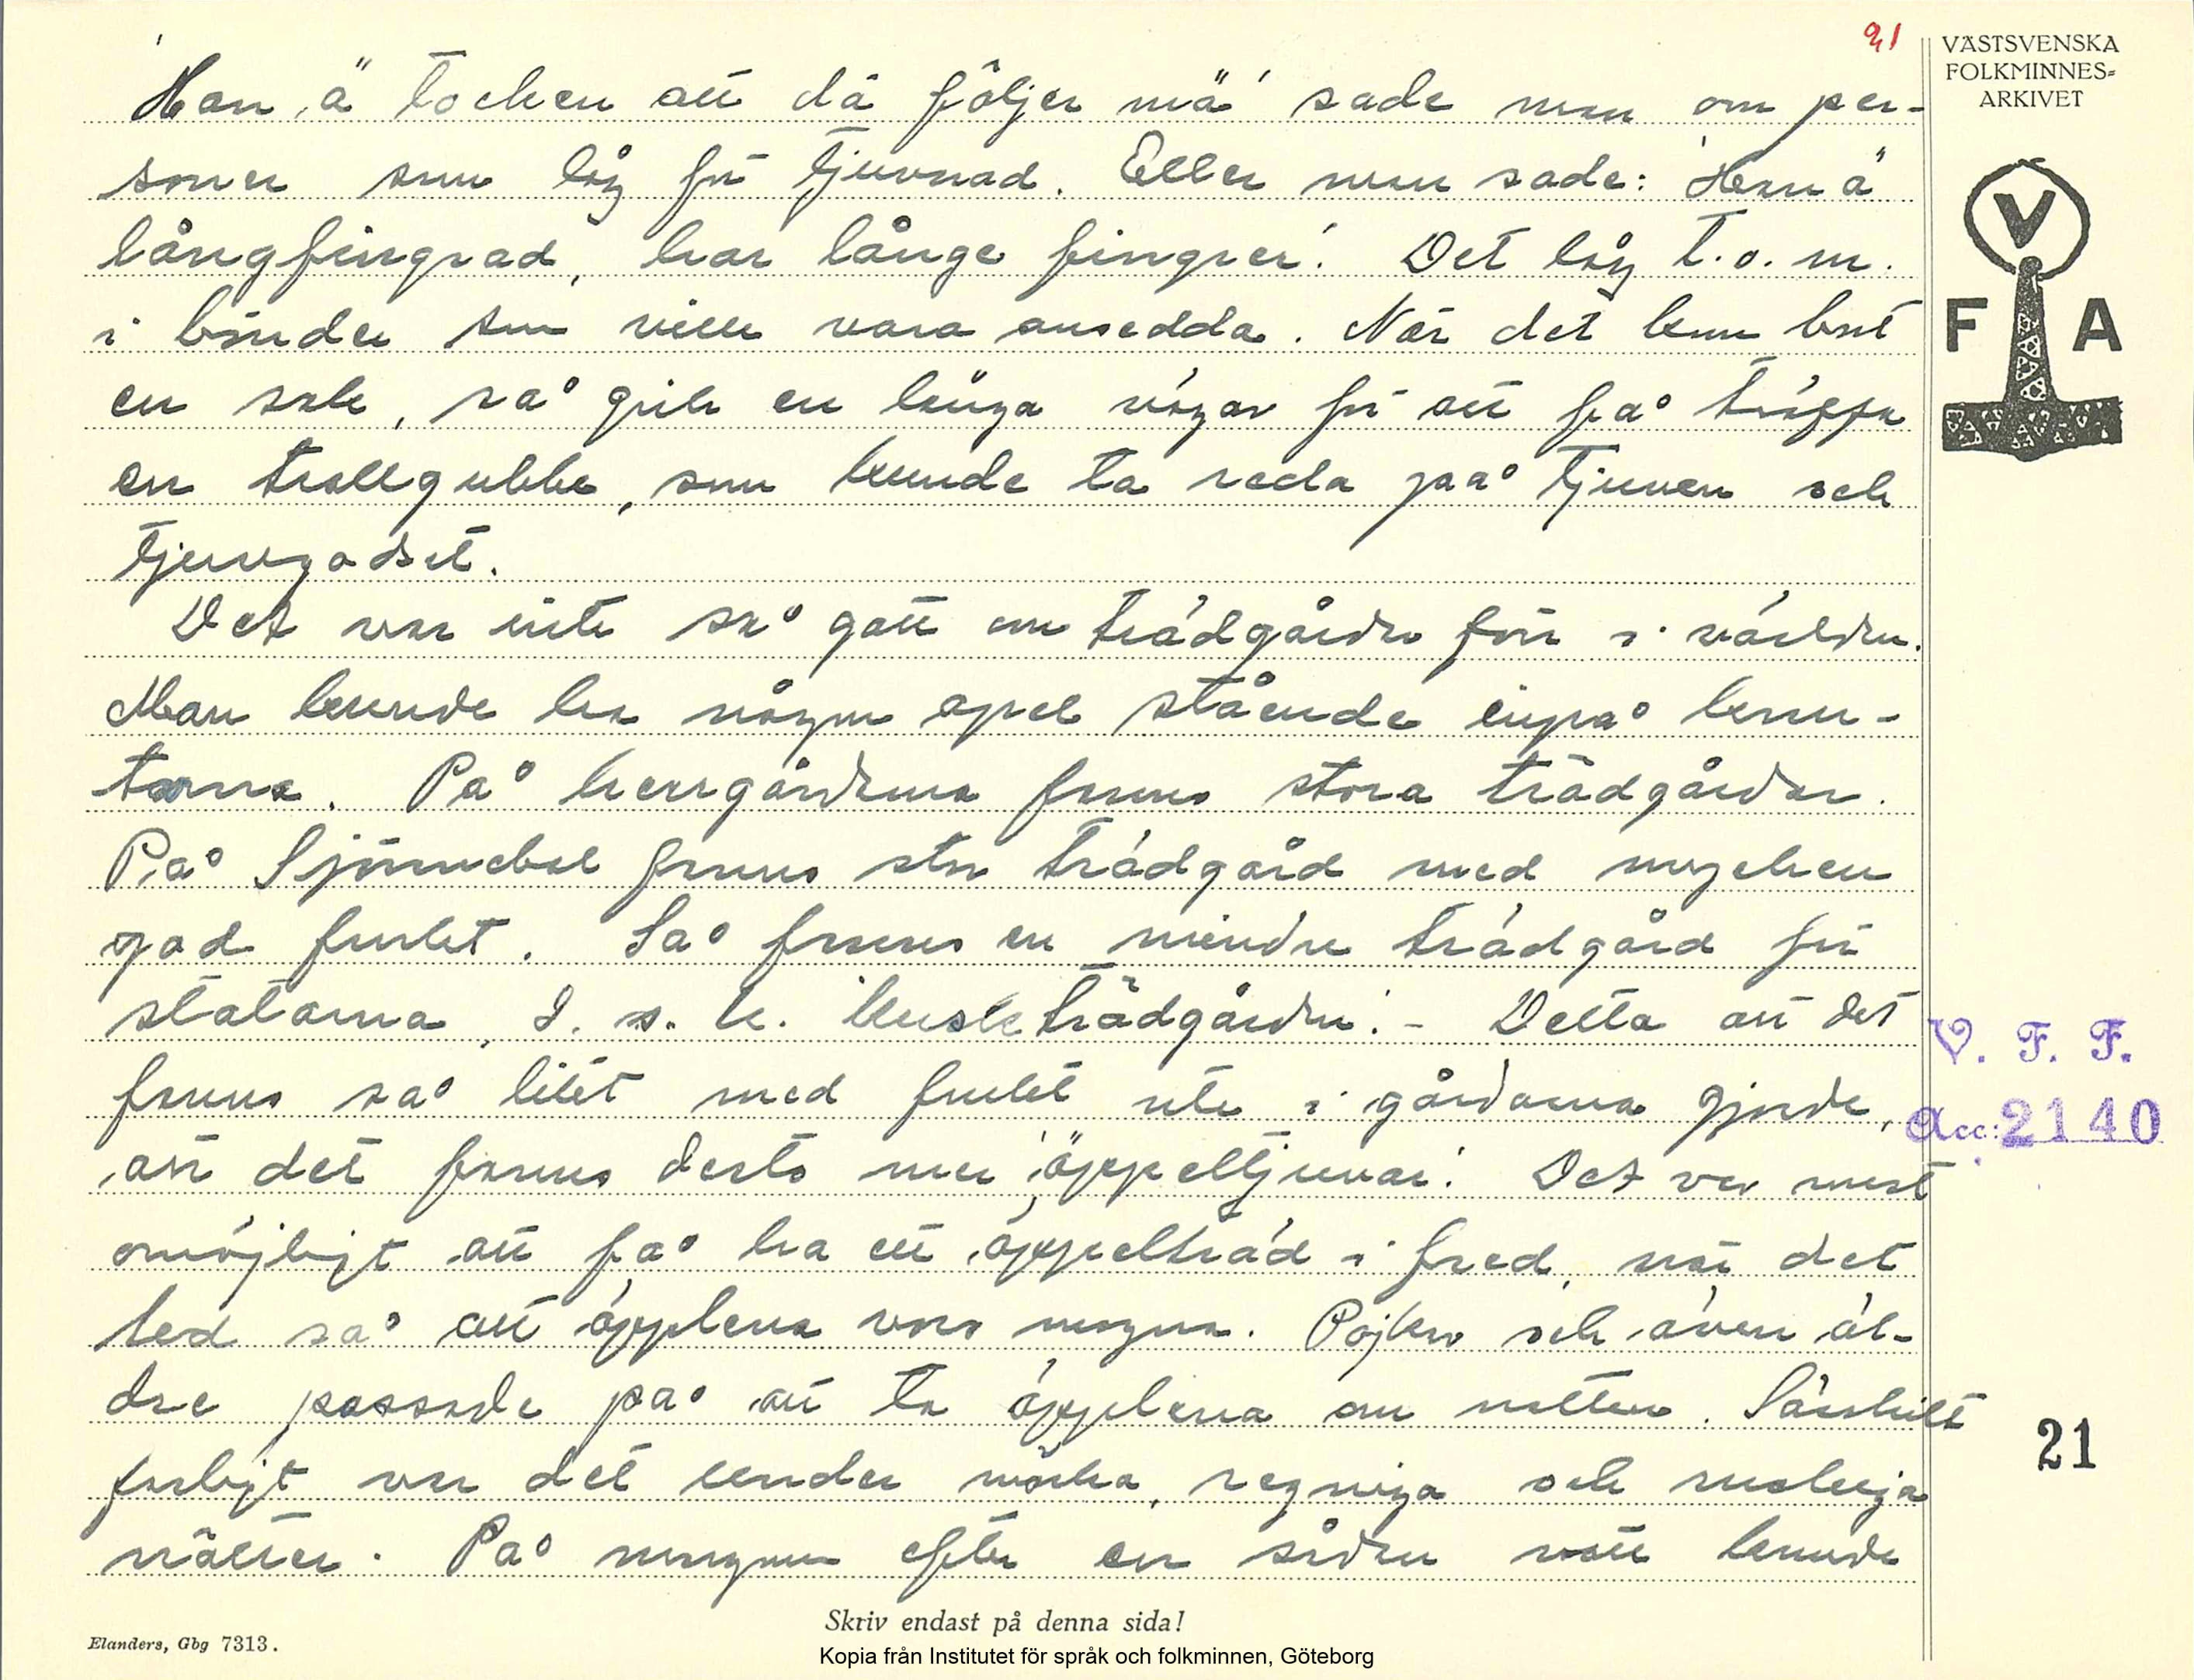 21
VÄSTSVENSKA
FOLKMINNES=
ARKIVET
'Han ä tocken att dä följer mä' sade man om per-
soner som låg för tjuvnad. Eller man sade: 'Han ä
långfingrad, har långe fingrer'. Det låg t.o.m.
i bönder som ville vara ansedda. När det kom bort
en sak, så gick en långa vägar för att få träffa
en trollgubbe, som kunde ta reda på tjuven och
tjuvgodset.
Det var inte så gott om trädgårdar förr i världen.
Man kunde ha någon apel stående inpå knu-
tarna. På herrgårdarna fanns stora trädgårdar.
På Sjönnebol fanns stor trädgård med mycken
god frukt. Så fanns en mindre trädgård för
statarna, d. s. k. 'kuske trädgården'. - Detta att det
fanns så litet med frukt ute i gårdarna gjorde,
att det fanns desto mer 'äppeltjuvar'. Det var mest
omöjligt att få ha ett äppelträd i fred, när det
led så att äpplena voro mogna. Pojkar och även äl-
dre passade på att ta äpplena om natten. Särskilt
farligt var det under mörka, regniga och ruskiga
nätter. På morgonen efter en sådan natt kunde
V
F A
V. F. F.
Acc: 2140
21
Skriv endast på denna sida!
Elanders, Gbg 7313.
Kopia från Institutet för språk och folkminnen, Göteborg